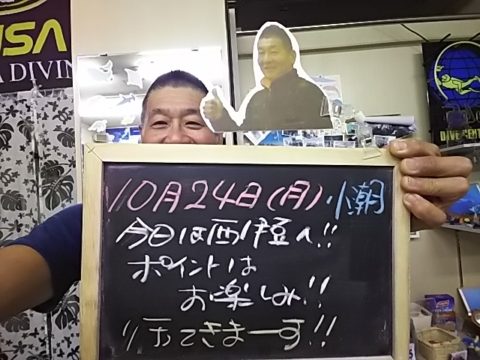 USA
DIVING
DIVE CENT
10月24日(月)小潮
今日は西伊豆へ!!
ポイントは
お楽しみ!!
行ってきまーす!!